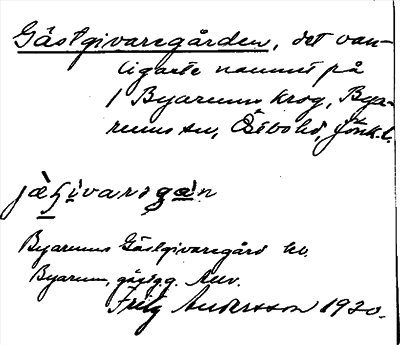 Gästgivaregården, det van-
ligaste namnet på
1 Byarums krog, Bya-
rums sn, Östbo hd, Jönk. l.
jä̀ʃivarsgạ̀n
Byarums Gästgivaregård lev.
Byarum, gästg.g.
Fritz Andersson 1920.